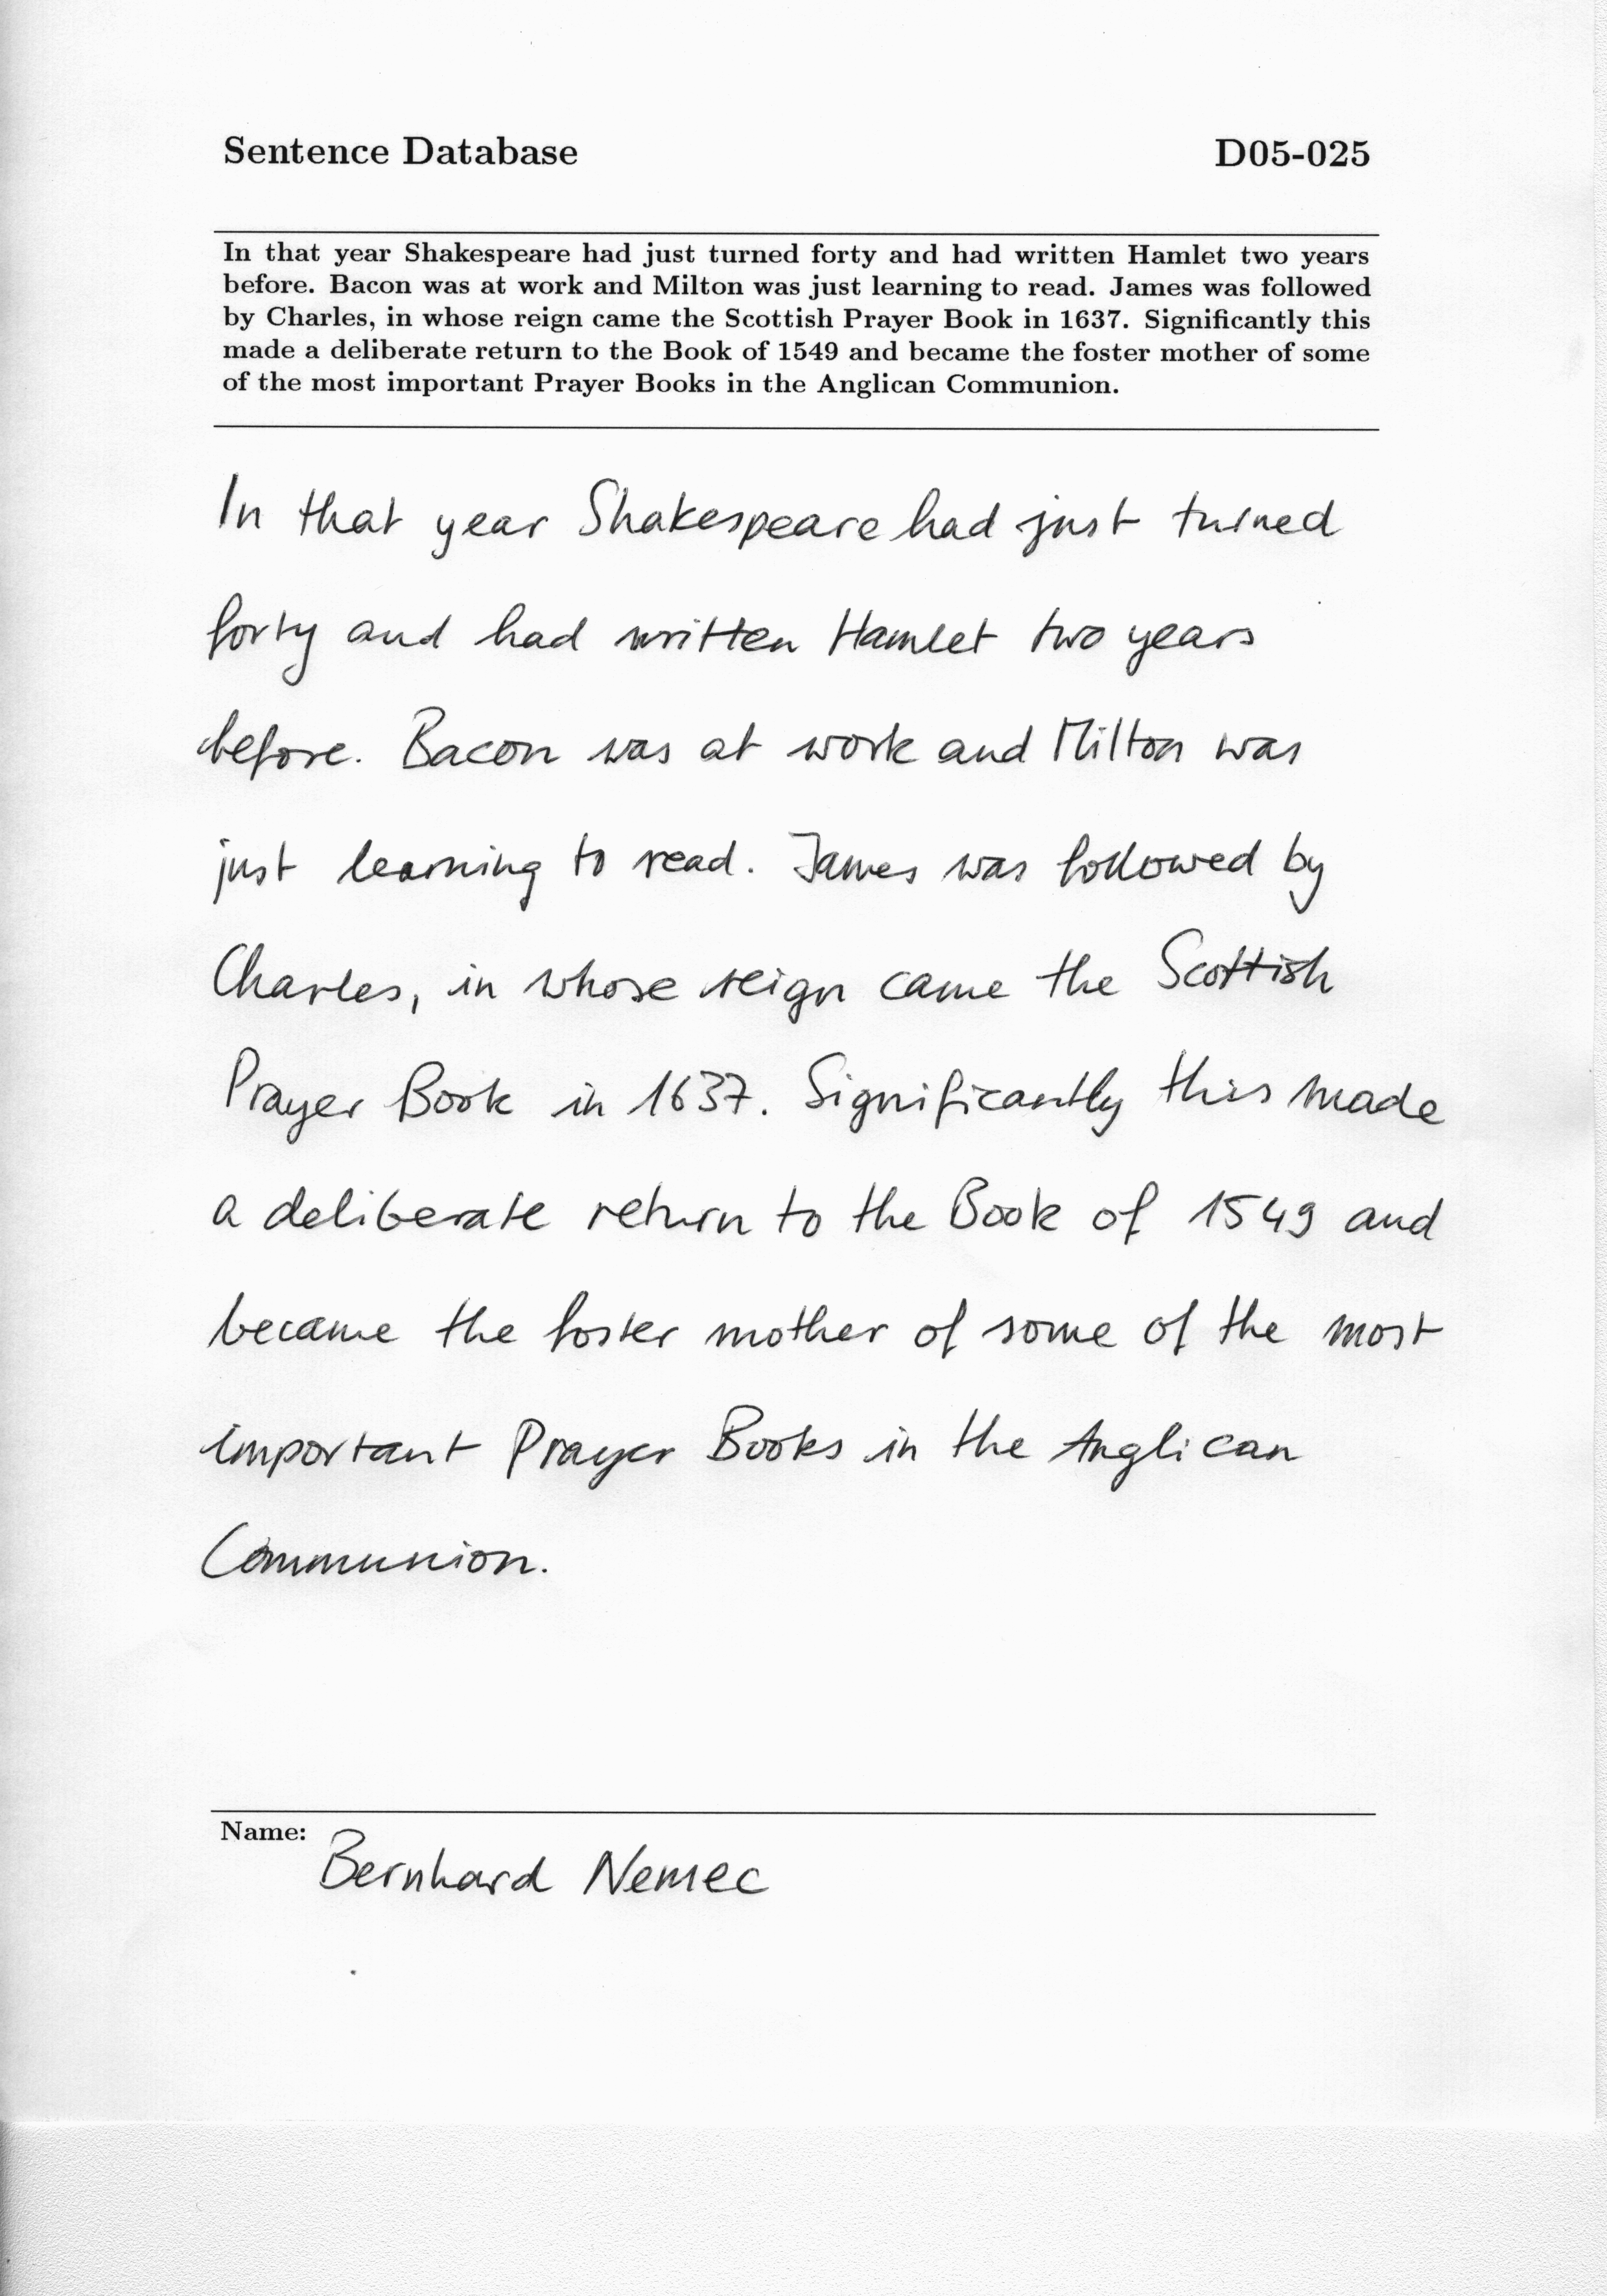 Sentence Database D05-025
In that year Shakespeare had just turned forty and had written Hamlet two years
before. Bacon was at work and Milton was just learning to read. James was followed
by Charles, in whose reign came the Scottish Prayer Book in 1637. Significantly this
made a deliberate return to the Book of 1549 and became the foster mother of some
of the most important Prayer Books in the Anglican Communion.
In that year Shakespeare had just turned
forty and had written Hamlet two years
before. Bacon was at work and Milton was
just learning to read. James was followed by
Charles, in whose reign came the Scottish
Prayer Book in 1637. Significantly this made
a deliberate return to the Book of 1549 and
became the foster mother of some of the most
important Prayer Books in the Anglican
Communion.
Name:
Bernhard Nemec